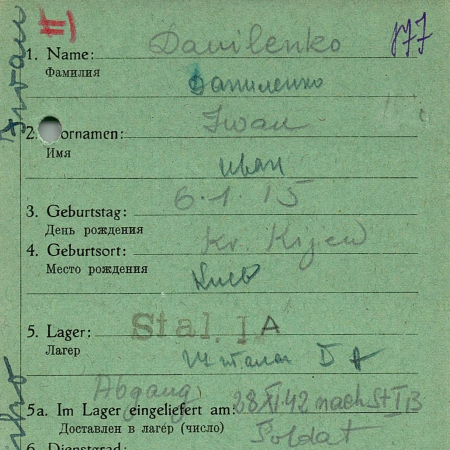 II)
877
Iwan
1. Name: Danilenko
Фамилия
Даниленко
2. Vornamen: Iwan
Имя
Иван
3. Geburtstag: 6.1.15
День рождения
4. Geburtsort: Kr. Kijew
Место рождения
Киев
5. Lager: Stal. IA
Лагер
Шталаг I A
Abgang 28 XI 42 nach St IB
5a. Im Lager eingeliefert am:
Доставлен в лагер (число)
Soldat
6. Dienstgrad: